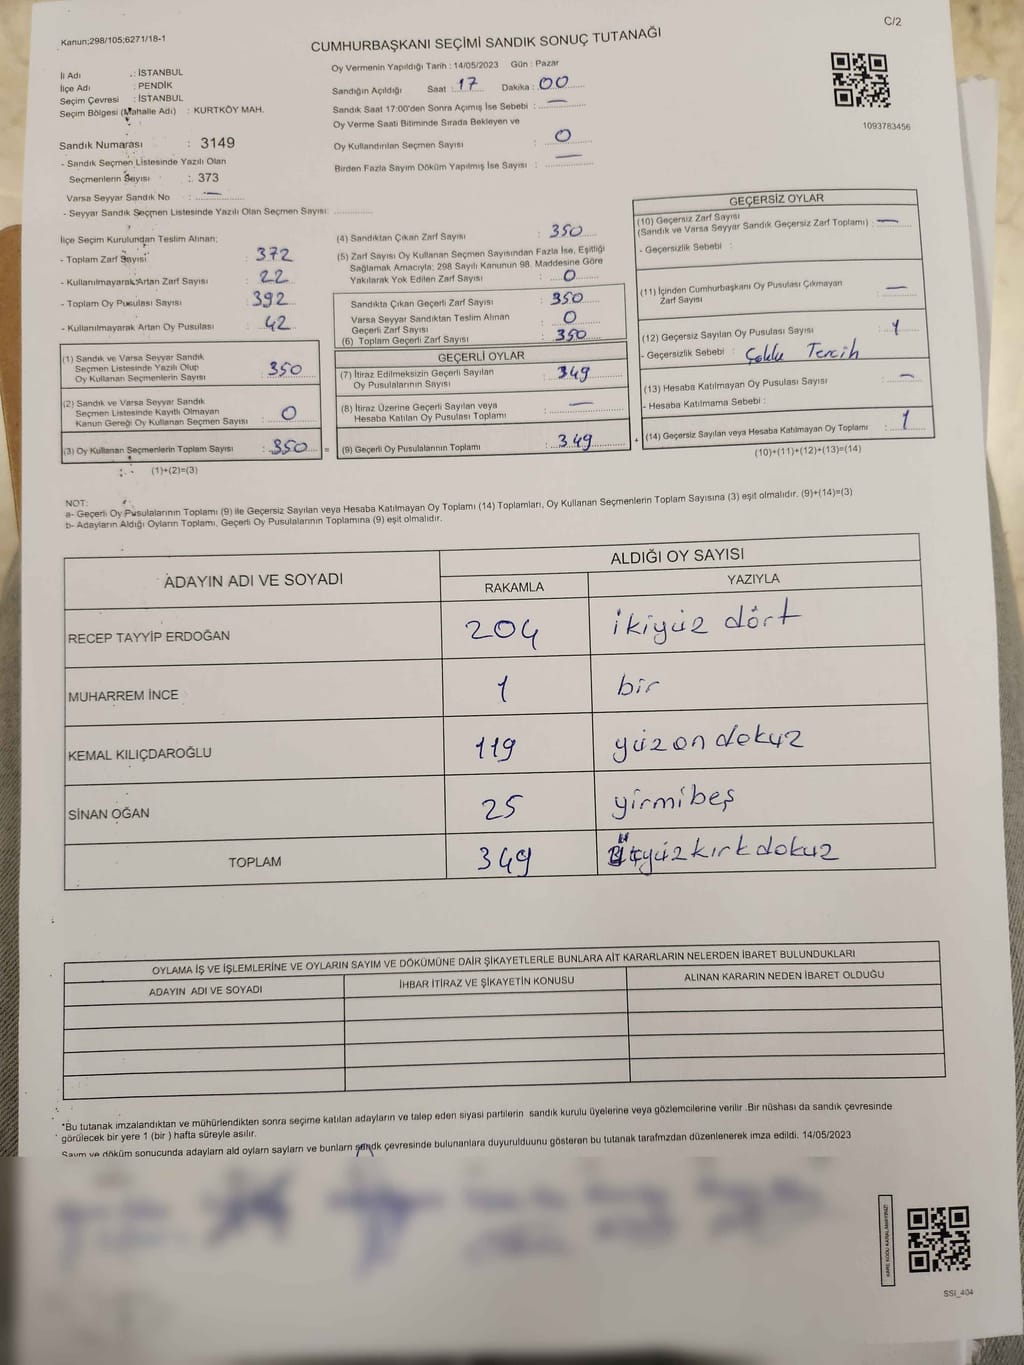 C/2
Kanun;298/105;6271/18-1
CUMHURBAŞKANI SEÇİMİ SANDIK SONUÇ TUTANAĞI
İl Adı : İSTANBUL
İlçe Adı : PENDİK
Seçim Çevresi : İSTANBUL
Seçim Bölgesi (Mahalle Adı) : KURTKÖY MAH.
Sandık Numarası : 3149
- Sandık Seçmen Listesinde Yazılı Olan
Seçmenlerin Sayısı : 373
Varsa Seyyar Sandık No : —
- Seyyar Sandık Seçmen Listesinde Yazılı Olan Seçmen Sayısı:
Oy Vermenin Yapıldığı Tarih : 14/05/2023 Gün : Pazar
Sandığın Açıldığı Saat : 17 Dakika : 00
Sandık Saat 17:00'den Sonra Açımış İse Sebebi : —
Oy Verme Saati Bitiminde Sırada Bekleyen ve
Oy Kullandırılan Seçmen Sayısı : 0
Birden Fazla Sayım Döküm Yapılmış İse Sayısı : —
1093783456
İlçe Seçim Kurulundan Teslim Alınan;
- Toplam Zarf Sayısı : 372
- Kullanılmayarak Artan Zarf Sayısı : 22
- Toplam Oy Pusulası Sayısı : 392
- Kullanılmayarak Artan Oy Pusulası : 42
(1) Sandık ve Varsa Seyyar Sandık
Seçmen Listesinde Yazılı Olup
Oy Kullanan Seçmenlerin Sayısı : 350
(2) Sandık ve Varsa Seyyar Sandık
Seçmen Listesinde Kayıtlı Olmayan
Kanun Gereği Oy Kullanan Seçmen Sayısı : 0
(3) Oy Kullanan Seçmenlerin Toplam Sayısı : 350 =
(1)+(2)=(3)
(4) Sandıktan Çıkan Zarf Sayısı : 350
(5) Zarf Sayısı Oy Kullanan Seçmen Sayısından Fazla İse, Eşitliği
Sağlamak Amacıyla; 298 Sayılı Kanunun 98. Maddesine Göre
Yakılarak Yok Edilen Zarf Sayısı : 0
Sandıkta Çıkan Geçerli Zarf Sayısı : 350
Varsa Seyyar Sandıktan Teslim Alınan
Geçerli Zarf Sayısı : 0
(6) Toplam Geçerli Zarf Sayısı : 350
GEÇERLİ OYLAR
(7) İtiraz Edilmeksizin Geçerli Sayılan
Oy Pusulalarının Sayısı : 349
(8) İtiraz Üzerine Geçerli Sayılan veya
Hesaba Katılan Oy Pusulası Toplamı : —
(9) Geçerli Oy Pusulalarının Toplamı : 349 +
GEÇERSİZ OYLAR
(10) Geçersiz Zarf Sayısı
(Sandık ve Varsa Seyyar Sandık Geçersiz Zarf Toplamı) : —
- Geçersizlik Sebebi :
(11) İçinden Cumhurbaşkanı Oy Pusulası Çıkmayan
Zarf Sayısı : —
(12) Geçersiz Sayılan Oy Pusulası Sayısı : 1
- Geçersizlik Sebebi : Çoklu Tercih
(13) Hesaba Katılmayan Oy Pusulası Sayısı : —
- Hesaba Katılmama Sebebi :
(14) Geçersiz Sayılan veya Hesaba Katılmayan Oy Toplamı : 1
(10)+(11)+(12)+(13)=(14)
NOT:
a- Geçerli Oy Pusulalarının Toplamı (9) ile Geçersiz Sayılan veya Hesaba Katılmayan Oy Toplamı (14) Toplamları, Oy Kullanan Seçmenlerin Toplam Sayısına (3) eşit olmalıdır. (9)+(14)=(3)
b- Adayların Aldığı Oyların Toplamı, Geçerli Oy Pusulalarının Toplamına (9) eşit olmalıdır.
ADAYIN ADI VE SOYADI
ALDIĞI OY SAYISI
RAKAMLA YAZIYLA
RECEP TAYYİP ERDOĞAN 204 ikiyüz dört
MUHARREM İNCE 1 bir
KEMAL KILIÇDAROĞLU 119 yüzondokuz
SİNAN OĞAN 25 yirmibeş
TOPLAM 349 üçyüzkırkdokuz
OYLAMA İŞ VE İŞLEMLERİNE VE OYLARIN SAYIM VE DÖKÜMÜNE DAİR ŞİKAYETLERLE BUNLARA AİT KARARLARIN NELERDEN İBARET BULUNDUKLARI
ADAYIN ADI VE SOYADI İHBAR İTİRAZ VE ŞİKAYETİN KONUSU ALINAN KARARIN NEDEN İBARET OLDUĞU
*Bu tutanak imzalandıktan ve mühürlendikten sonra seçime katılan adayların ve talep eden siyasi partilerin sandık kurulu üyelerine veya gözlemcilerine verilir .Bir nüshası da sandık çevresinde
görülecek bir yere 1 (bir ) hafta süreyle asılır.
Sayım ve döküm sonucunda adaylarn ald oylarn saylarn ve bunlarn sandk çevresinde bulunanlara duyurulduunu gösteren bu tutanak tarafmzdan düzenlenerek imza edildi. 14/05/2023
SSI_404